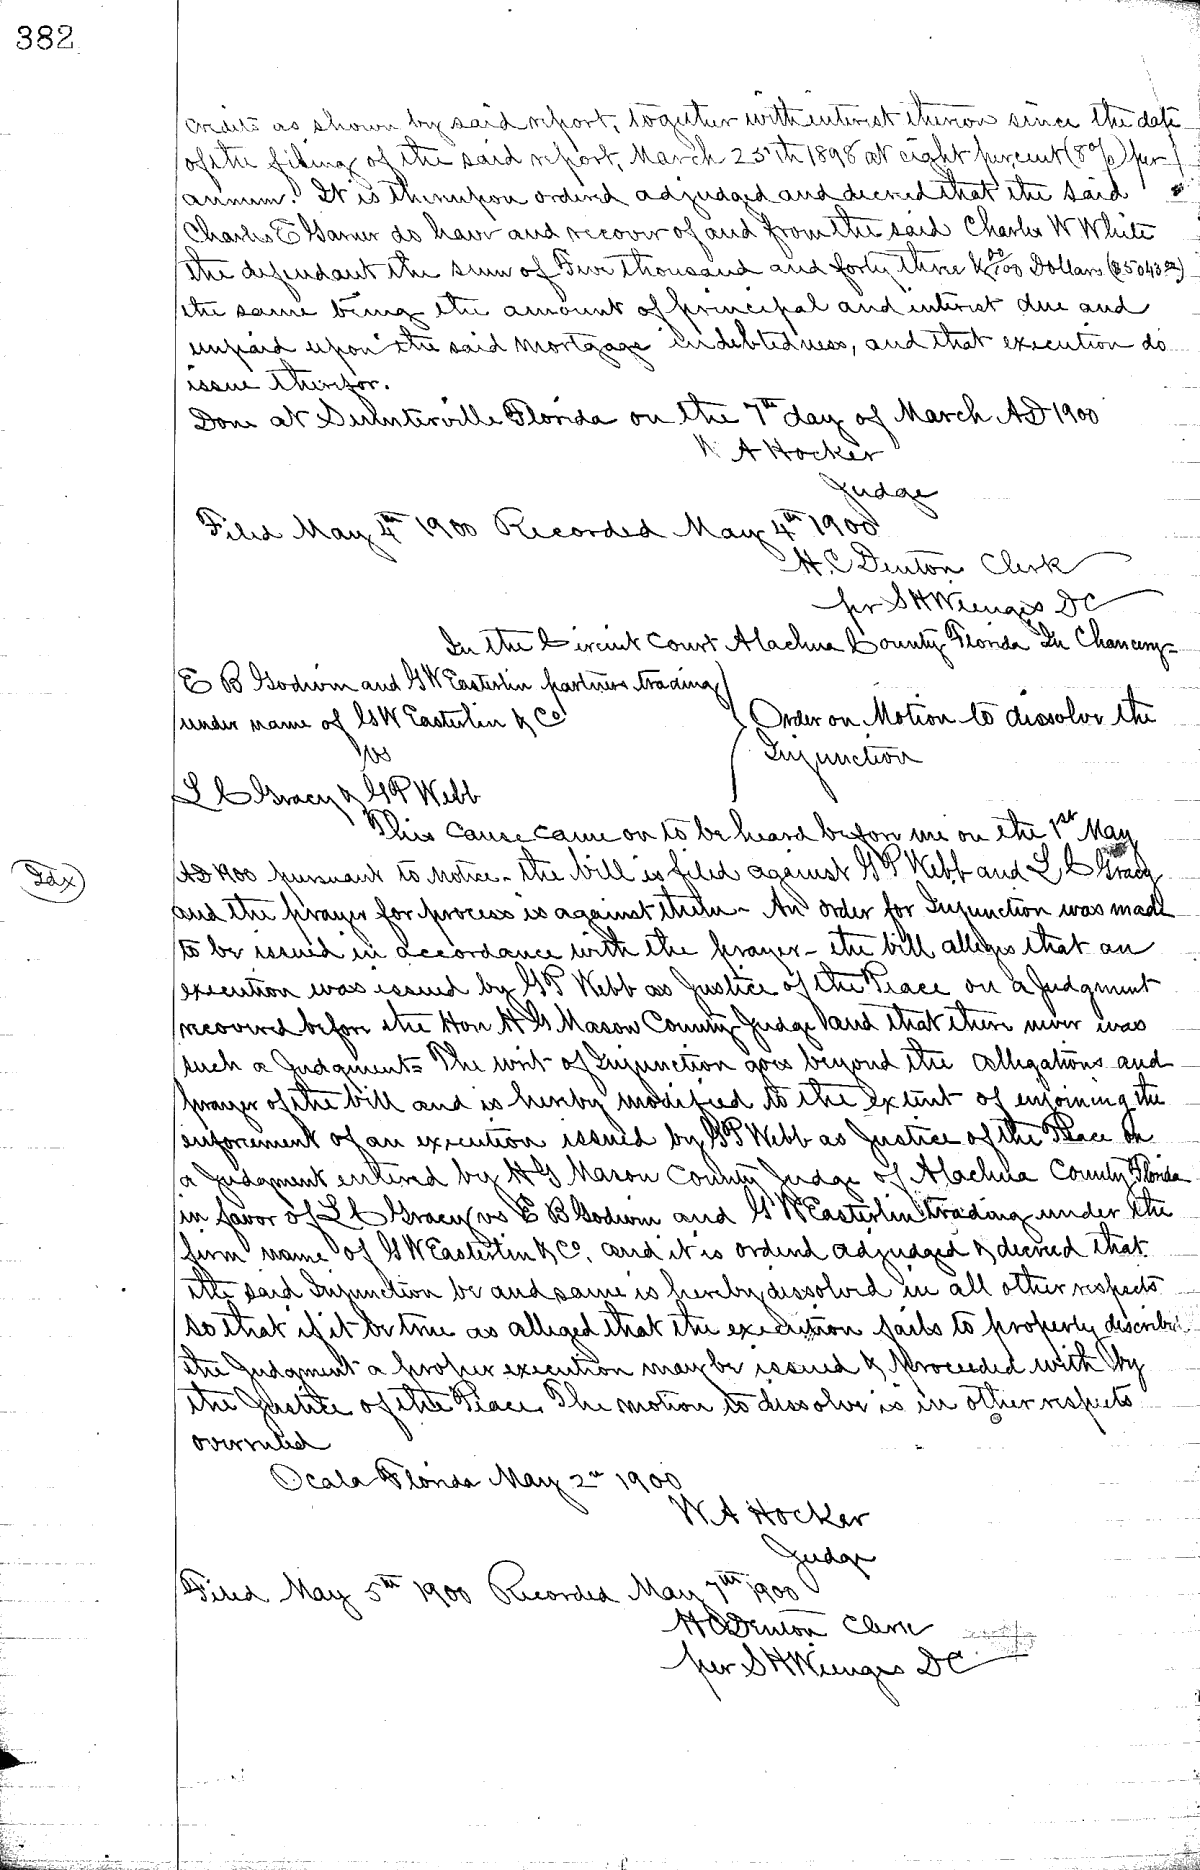 382
credits as shown by said report, together with interest thereon since the date
of the filing of the said report, March 25th 1898 at eight percent (8%) per
annum. It is thereupon ordered adjudged and decreed that the said
Charles E Garner do have and recover of and from the said Charles W White
the defendant the sum of Five thousand and forty three & /100 Dollars ($5043 )
the same being the amount of principal and interest due and
unpaid upon the said mortgage indebtedness, and that execution do
issue therefor.
Done at Sumterville Florida on the 7th day of March AD 1900
W A Hocker
Judge
Filed May 4th 1900 Recorded May 4th 1900
H. C Denton Clerk
per S H Wienges DC
In the Circuit Court Alachua County Florida In Chancery=
E B Godwin and G W Easterlin partners trading
under name of G W Easterlin & Co
vs
L C Gracy & G P Webb
Order on Motion to dissolve the
Injunction
This cause came on to be heard before me on the 1st May
Idx
AD 1900 pursuant to notice- the bill is filed against G P Webb and L C Gracy
and the prayer for process is against them- An order for Injunction was made
to be issued in accordance with the prayer- the bill alleges that an
execution was issued by G P Webb as Justice of the Peace on a Judgment
recovered before the Hon H G Mason County Judge and that there never was
such a Judgment= The writ of Injunction goes beyond the allegations and
prayer of the bill and is hereby modified to the extent of enjoining the
enforcement of an execution issued by G P Webb as Justice of the Peace on
a Judgment entered by H G Mason County Judge of Alachua County Florida
in favor of L C Gracy vs E B Godwin and G W Easterlin trading under the
firm name of G W Easterlin & Co. and it is ordered adjudged & decreed that
the said Injunction be and same is hereby dissolved in all other respects
so that if it be true as alleged that the execution fails to properly describe
the Judgment a proper execution may be issued & proceeded with by
the Justice of the Peace. The motion to dissolve is in other respects
overruled
Ocala Florida May 2nd 1900
W A Hocker
Judge
Filed May 5th 1900 Recorded May 7th 1900
H C Denton Clerk
per S H Wienges DC